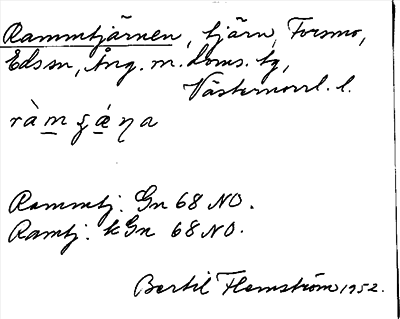 Rammtjärnen, tjärn, Forsmo,
Edssn, Ång. m. doms. tg,
Västernorrl. l.
ràm ʂæŋa
Rammtj. Gn 68 NO.
Ramtj. kGn 68 NO.
Bertil Flemström 1952.